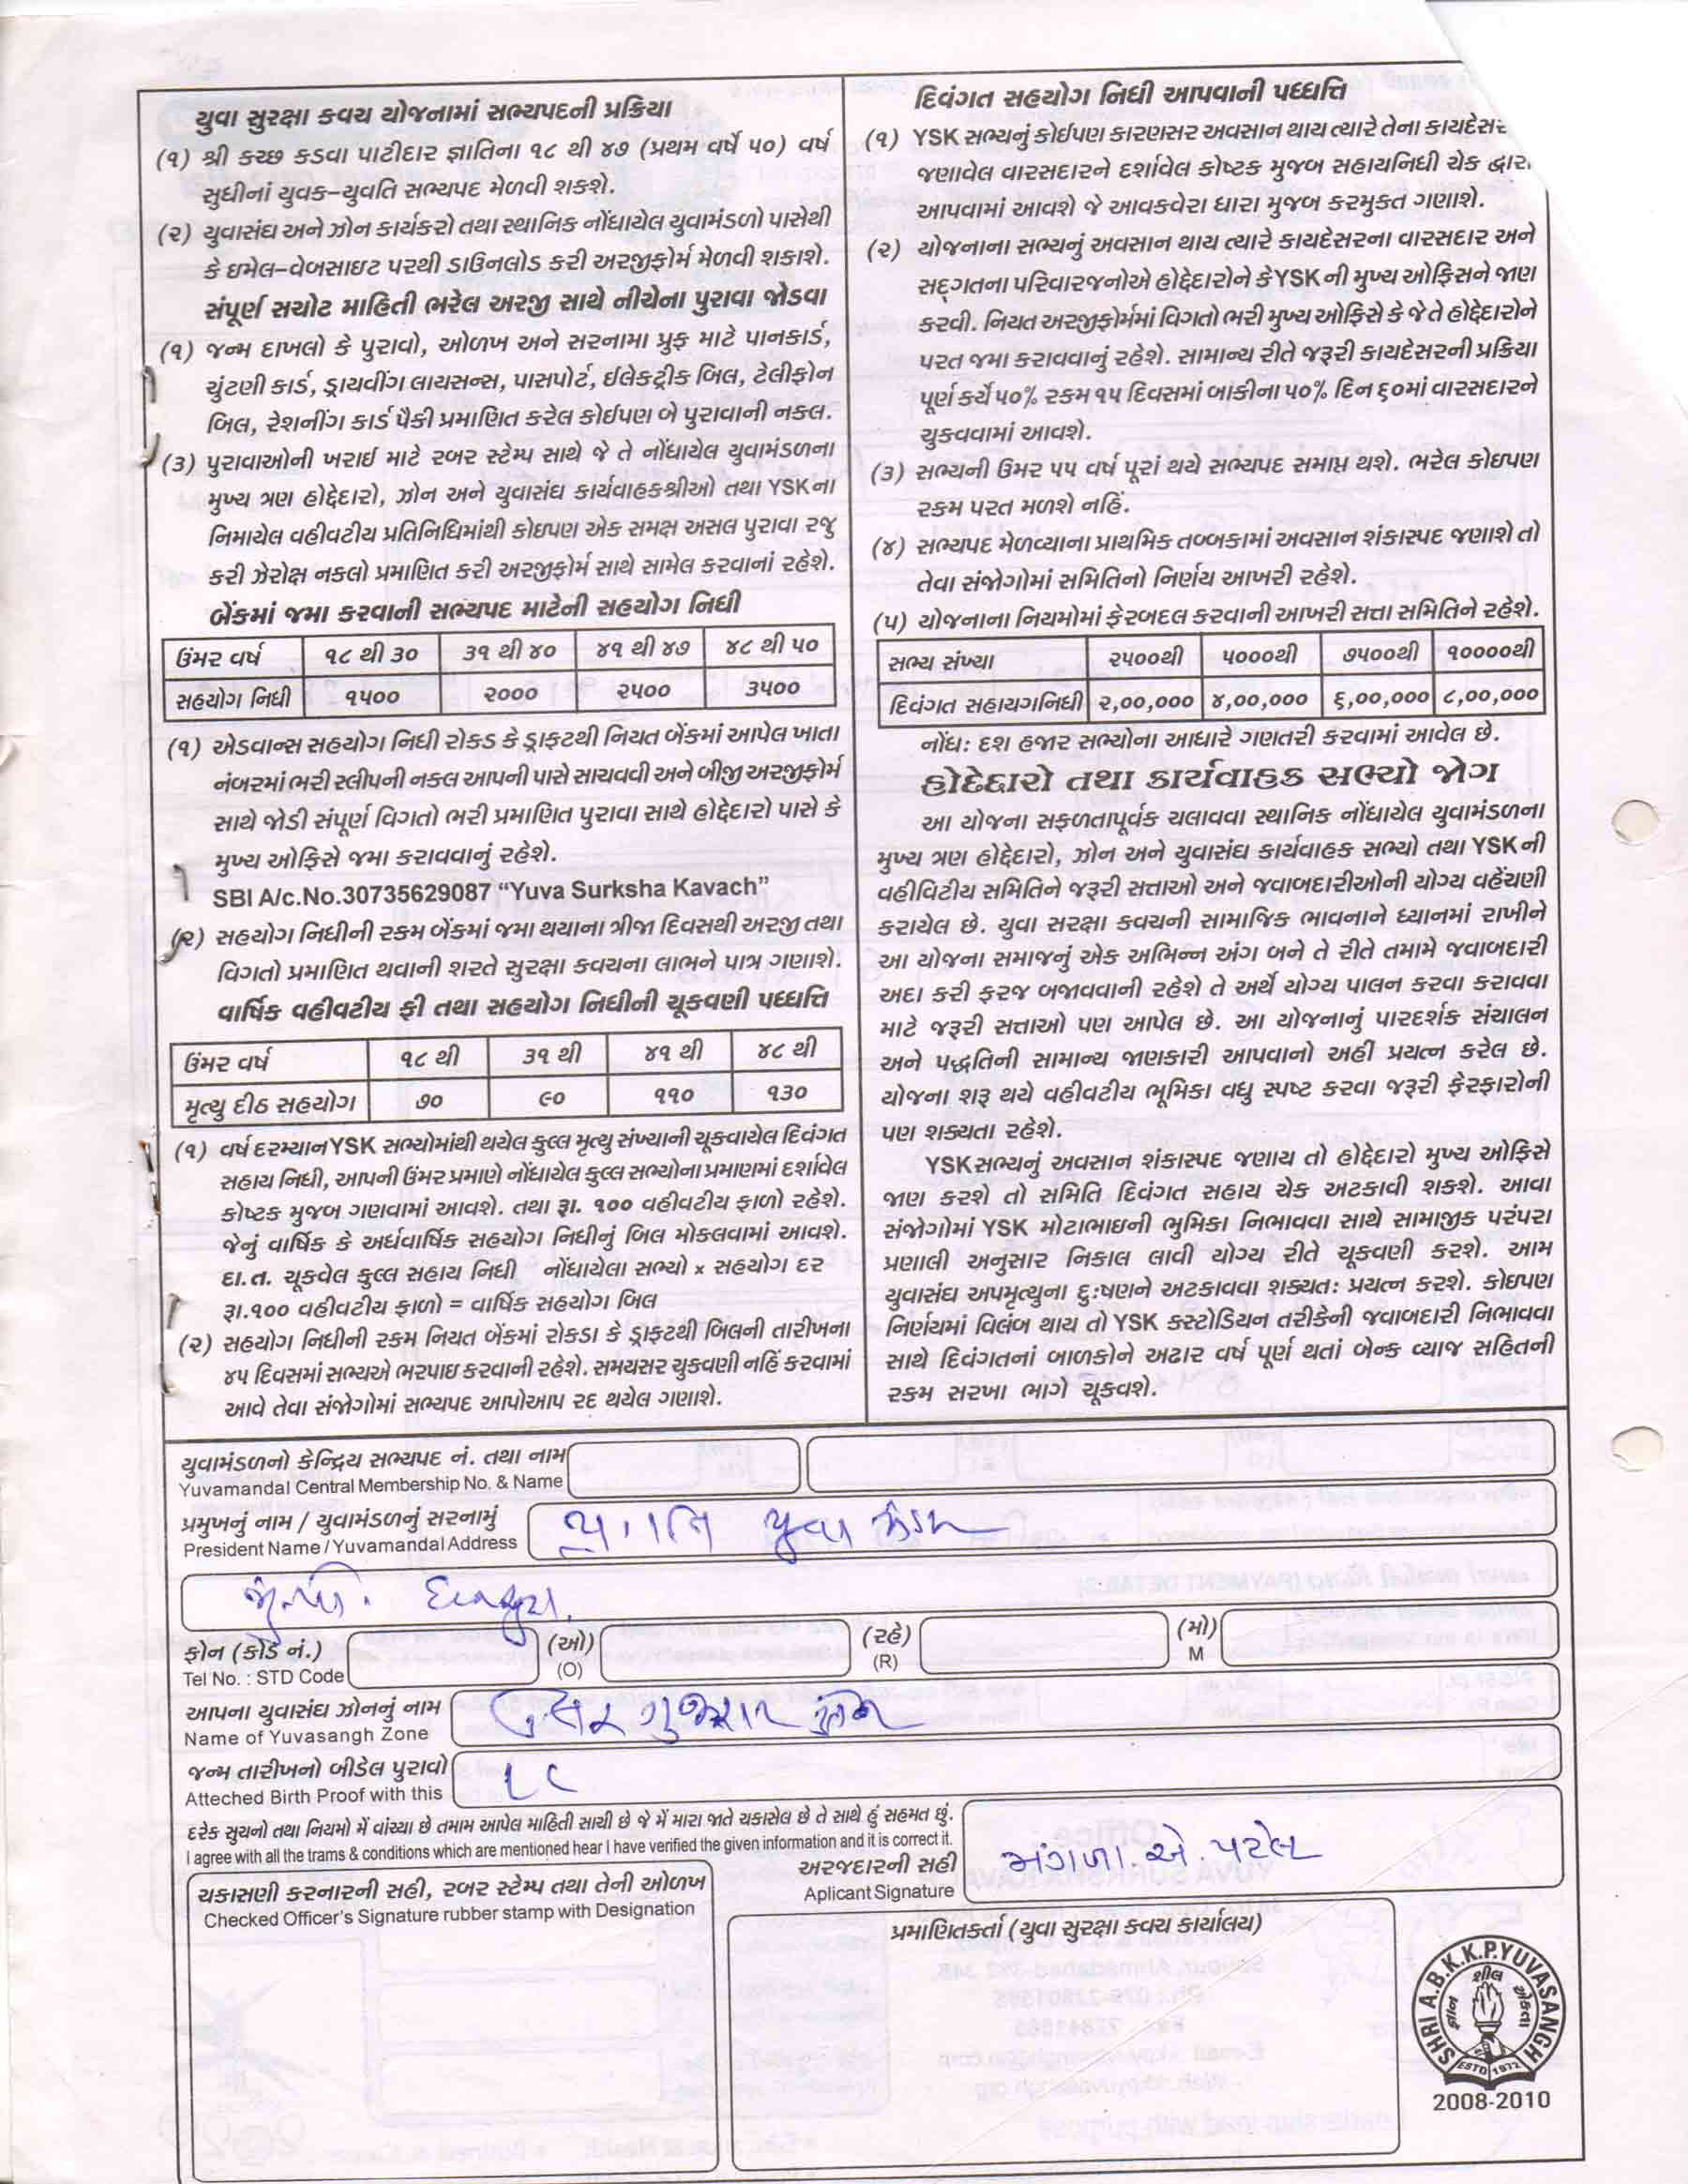 યુવા સુરક્ષા કવચ યોજનામાં સભ્યપદની પ્રક્રિયા
(૧) શ્રી કચ્છ કડવા પાટીદાર જ્ઞાતિના ૧૮ થી ૪૭ (પ્રથમ વર્ષે ૫૦) વર્ષ
સુધીનાં યુવક–યુવતિ સભ્યપદ મેળવી શકશે.
(૨) યુવાસંઘ અને ઝોન કાર્યકરો તથા સ્થાનિક નોંધાયેલ યુવામંડળો પાસેથી
કે ઇમેલ–વેબસાઇટ પરથી ડાઉનલોડ કરી અરજીફોર્મ મેળવી શકાશે.
સંપૂર્ણ સચોટ માહિતી ભરેલ અરજી સાથે નીચેના પુરાવા જોડવા
(૧) જન્મ દાખલો કે પુરાવો, ઓળખ અને સરનામા પ્રુફ માટે પાનકાર્ડ,
ચુંટણી કાર્ડ, ડ્રાયવીંગ લાયસન્સ, પાસપોર્ટ, ઈલેકટ્રીક બિલ, ટેલીફોન
બિલ, રેશનીંગ કાર્ડ પૈકી પ્રમાણિત કરેલ કોઈપણ બે પુરાવાની નકલ.
(૩) પુરાવાઓની ખરાઈ માટે રબર સ્ટેમ્પ સાથે જે તે નોંધાયેલ યુવામંડળના
મુખ્ય ત્રણ હોદ્દેદારો, ઝોન અને યુવાસંઘ કાર્યવાહકશ્રીઓ તથા YSKના
નિમાયેલ વહીવટીય પ્રતિનિધિમાંથી કોઇપણ એક સમક્ષ અસલ પુરાવા રજુ
કરી ઝેરોક્ષ નકલો પ્રમાણિત કરી અરજીફોર્મ સાથે સામેલ કરવાનાં રહેશે.
બેંકમાં જમા કરવાની સભ્યપદ માટેની સહયોગ નિધી
ઉંમર વર્ષ ૧૮ થી ૩૦ ૩૧ થી ૪૦ ૪૧ થી ૪૭ ૪૮ થી ૫૦
સહયોગ નિધી ૧૫૦૦ ૨૦૦૦ ૨૫૦૦ ૩૫૦૦
(૧) એડવાન્સ સહયોગ નિધી રોકડ કે ડ્રાફટથી નિયત બેંકમાં આપેલ ખાતા
નંબરમાં ભરી સ્લીપની નકલ આપની પાસે સાચવવી અને બીજી અરજીફોર્મ
સાથે જોડી સંપૂર્ણ વિગતો ભરી પ્રમાણિત પુરાવા સાથે હોદ્દેદારો પાસે કે
મુખ્ય ઓફિસે જમા કરાવવાનું રહેશે.
SBI A/c.No.30735629087 “Yuva Surksha Kavach”
(૨) સહયોગ નિધીની રકમ બેંકમાં જમા થયાના ત્રીજા દિવસથી અરજી તથા
વિગતો પ્રમાણિત થવાની શરતે સુરક્ષા કવચના લાભને પાત્ર ગણાશે.
વાર્ષિક વહીવટીય ફી તથા સહયોગ નિધીની ચૂકવણી પધ્ધતિ
ઉંમર વર્ષ ૧૮ થી ૩૧ થી ૪૧ થી ૪૮ થી
મૃત્યુ દીઠ સહયોગ ૭૦ ૯૦ ૧૧૦ ૧૩૦
(૧) વર્ષ દરમ્યાન YSK સભ્યોમાંથી થયેલ કુલ્લ મૃત્યુ સંખ્યાની ચૂકવાયેલ દિવંગત
સહાય નિધી, આપની ઉંમર પ્રમાણે નોંધાયેલ કુલ્લ સભ્યોના પ્રમાણમાં દર્શાવેલ
કોષ્ટક મુજબ ગણવામાં આવશે. તથા રૂા. ૧૦૦ વહીવટીય ફાળો રહેશે.
જેનું વાર્ષિક કે અર્ધવાર્ષિક સહયોગ નિધીનું બિલ મોકલવામાં આવશે.
દા.ત. ચૂકવેલ કુલ્લ સહાય નિધી નોંધાયેલા સભ્યો × સહયોગ દર
રૂા.૧૦૦ વહીવટીય ફાળો = વાર્ષિક સહયોગ બિલ
(૨) સહયોગ નિધીની રકમ નિયત બેંકમાં રોકડા કે ડ્રાફટથી બિલની તારીખના
૪૫ દિવસમાં સભ્યએ ભરપાઇ કરવાની રહેશે. સમયસર ચુકવણી નહિં કરવામાં
આવે તેવા સંજોગોમાં સભ્યપદ આપોઆપ રદ થયેલ ગણાશે.
દિવંગત સહયોગ નિધી આપવાની પધ્ધતિ
(૧) YSK સભ્યનું કોઈપણ કારણસર અવસાન થાય ત્યારે તેના કાયદેસર
જણાવેલ વારસદારને દર્શાવેલ કોષ્ટક મુજબ સહાયનિધી ચેક દ્વારા
આપવામાં આવશે જે આવકવેરા ધારા મુજબ કરમુકત ગણાશે.
(૨) યોજનાના સભ્યનું અવસાન થાય ત્યારે કાયદેસરના વારસદાર અને
સદ્‌ગતના પરિવારજનોએ હોદ્દેદારોને કે YSK ની મુખ્ય ઓફિસને જાણ
કરવી. નિયત અરજીફોર્મમાં વિગતો ભરી મુખ્ય ઓફિસે કે જે તે હોદ્દેદારોને
પરત જમા કરાવવાનું રહેશે. સામાન્ય રીતે જરૂરી કાયદેસરની પ્રક્રિયા
પૂર્ણ કર્યે ૫૦% રકમ ૧૫ દિવસમાં બાંકીના ૫૦% દિન ૬૦માં વારસદારને
ચુકવવામાં આવશે.
(૩) સભ્યની ઉંમર ૫૫ વર્ષ પૂરાં થયે સભ્યપદ સમાપ્ત થશે. ભરેલ કોઇપણ
રકમ પરત મળશે નહિં.
(૪) સભ્યપદ મેળવ્યાના પ્રાથમિક તબ્બકામાં અવસાન શંકાસ્પદ જણાશે તો
તેવા સંજોગોમાં સમિતિનો નિર્ણય આખરી રહેશે.
(૫) યોજનાના નિયમોમાં ફેરબદલ કરવાની આખરી સત્તા સમિતિને રહેશે.
સભ્ય સંખ્યા ૨૫૦૦થી ૫૦૦૦થી ૭૫૦૦થી ૧૦૦૦૦થી
દિવંગત સહાયગનિધી ૨,૦૦,૦૦૦ ૪,૦૦,૦૦૦ ૬,૦૦,૦૦૦ ૮,૦૦,૦૦૦
નોંધ: દશ હજાર સભ્યોના આધારે ગણતરી કરવામાં આવેલ છે.
હોદેદારો તથા કાર્યવાહક સભ્યો જોગ
આ યોજના સફળતાપૂર્વક ચલાવવા સ્થાનિક નોંધાયેલ યુવામંડળના
મુખ્ય ત્રણ હોદ્દેદારો, ઝોન અને યુવાસંઘ કાર્યવાહક સભ્યો તથા YSK ની
વહીવિટીય સમિતિને જરૂરી સત્તાઓ અને જવાબદારીઓની યોગ્ય વહેંચણી
કરાયેલ છે. યુવા સરક્ષા કવચની સામાજિક ભાવનાને ધ્યાનમાં રાખીને
આ યોજના સમાજનું એક અભિન્ન અંગ બને તે રીતે તમામે જવાબદારી
અદા કરી ફરજ બજાવવાની રહેશે તે અર્થે યોગ્ય પાલન કરવા કરાવવા
માટે જરૂરી સત્તાઓ પણ આપેલ છે. આ યોજનાનું પારદર્શક સંચાલન
અને પદ્ધતિની સામાન્ય જાણકારી આપવાનો અહીં પ્રયત્ન કરેલ છે.
યોજના શરૂ થયે વહીવટીય ભૂમિકા વધુ સ્પષ્ટ કરવા જરૂરી ફેરફારોની
પણ શક્યતા રહેશે.
YSK સભ્યનું અવસાન શંકાસ્પદ જણાય તો હોદ્દેદારો મુખ્ય ઓફિસે
જાણ કરશે તો સમિતિ દિવંગત સહાય ચેક અટકાવી શકશે. આવા
સંજોગોમાં YSK મોટાભાઇની ભુમિકા નિભાવવા સાથે સામાજીક પરંપરા
પ્રણાલી અનુસાર નિકાલ લાવી યોગ્ય રીતે ચૂકવણી કરશે. આમ
યુવાસંઘ અપમૃત્યુના દુઃષણને અટકાવવા શક્યતઃ પ્રયત્ન કરશે. કોઇપણ
નિર્ણયમાં વિલંબ થાય તો YSK કસ્ટોડિયન તરીકેની જવાબદારી નિભાવવા
સાથે દિવંગતનાં બાળકોને અઢાર વર્ષ પૂર્ણ થતાં બેન્ક વ્યાજ સહિતની
રકમ સરખા ભાગે ચૂકવશે.
યુવામંડળનો કેન્દ્રિય સભ્યપદ નં. તથા નામ
Yuvamandal Central Membership No. & Name
પ્રમુખનું નામ / યુવામંડળનું સરનામું
President Name / Yuvamandal Address
પ્રગતિ યુવા મંડળ
ફોન (કોડ નં.) (ઓ) (રહે) (મો)
Tel No. : STD Code (O) (R) M
આપના યુવાસંઘ ઝોનનું નામ
Name of Yuvasangh Zone
ઉત્તર ગુજરાત ઝોન
જન્મ તારીખનો બીડેલ પુરાવો
Atteched Birth Proof with this
LC
દરેક સુચનો તથા નિયમો મેં વાંચ્યા છે તમામ આપેલ માહિતી સાચી છે જે મેં મારા જાતે ચકાસેલ છે તે સાથે હું સહમત છું.
I agree with all the trams & conditions which are mentioned hear I have verified the given information and it is correct it.
અરજદારની સહી
Aplicant Signature
મંગળા. એ. પટેલ
ચકાસણી કરનારની સહી, રબર સ્ટેમ્પ તથા તેની ઓળખ
Checked Officer's Signature rubber stamp with Designation
પ્રમાણિતકર્તા (યુવા સુરક્ષા કવચ કાર્યાલય)
SHRI A.B.K.K.P.YUVASANGH
ESTD 1972
2008-2010